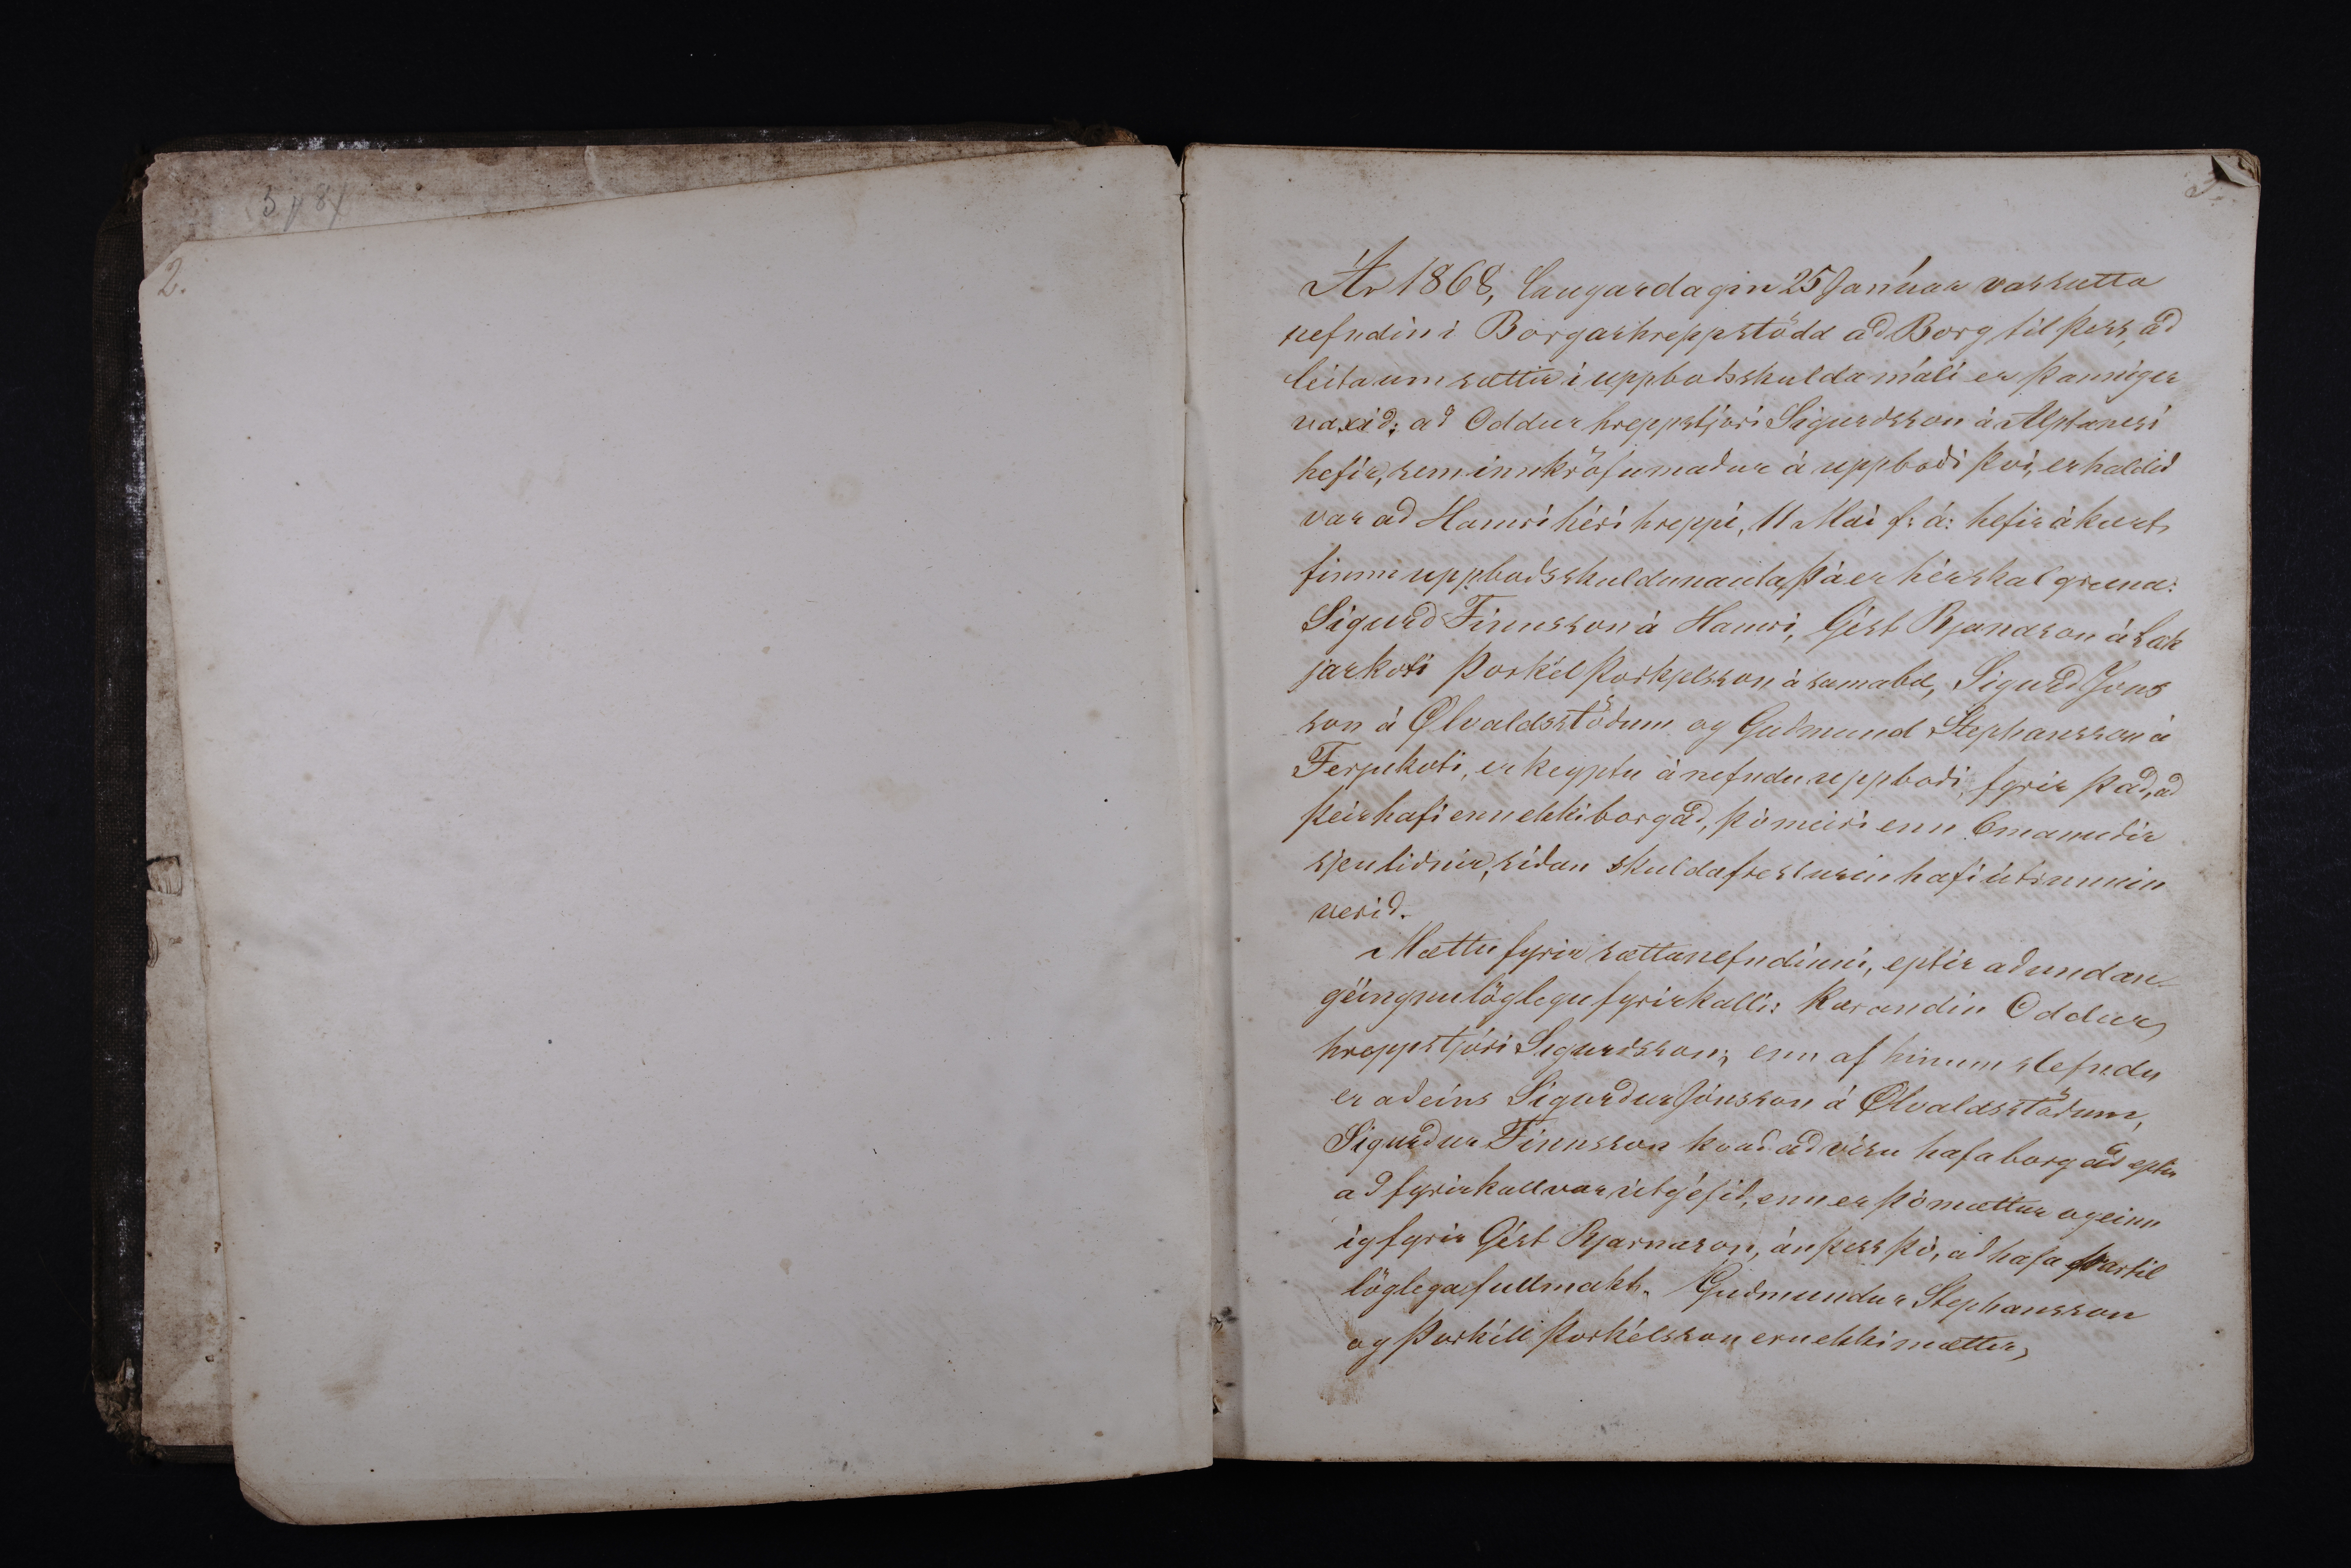 2.
3.
Ár 1868, Laugardagin 25 Januar var sætta
nefndin i Borgarhrepp stödd að Borg til þess, að
leita um sættir i uppboðsskulda máli er þannig er
vaxið; að Oddur hreppstjóri Sigurdsson á Alptanesi
hefir, sem innkröfumaður á uppboði því, er haldið
var að Hamri hér i hreppi, 11 Mai f: á: hefir ákært
fimm uppboðsskuldunauta, þá er hér skal greina:
Sigurð Finnsson á Hamri, Gést Bjarnason á Læk
jarkoti Þorkél Þorkjelsson á samabæ, Sigurð Jóns
son á Ølvaldsstöðum og Guðmund Stephansson á
Ferjukoti, er keyptu á nefndu uppboði, fyrir það, að
þeir hafi enn ekki borgað, þó meiri enn 6 manuðir
sjeu liðnir, síðan skuldafresturin hafi útrunnin
verið.
Mættu fyrir sættanefndinni, eptir að undan-
géingnu löglegu fyrirkalli: Kærandin Oddur
hreppstjóri Sigurdsson; enn af hinum stefndu
er aðeins Sigurður Jónsson á Ølvaldsstöðum,
Sigurður Finnsson kvað að vísu hafa borgað eptir
að fyrirkall var útgéfið, enn er þó mættur og einn
ig fyrir Gést Bjarnason, án þess þó, að hafa þartil
löglega fullmakt. Guðmundur Stephansson
og Þorkéll Þorkélsson eru ekki mættir,